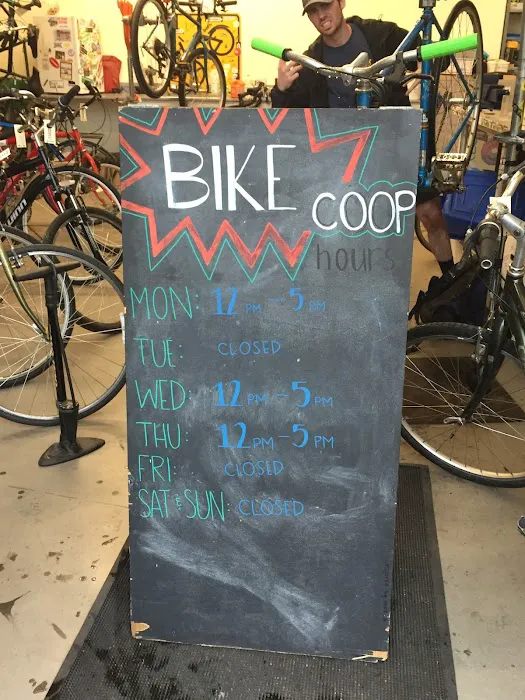 BIKE COOP
hours
MON: 12 PM - 5 PM
TUE: CLOSED
WED: 12 PM - 5 PM
THU: 12 PM - 5 PM
FRI: CLOSED
SAT & SUN: CLOSED